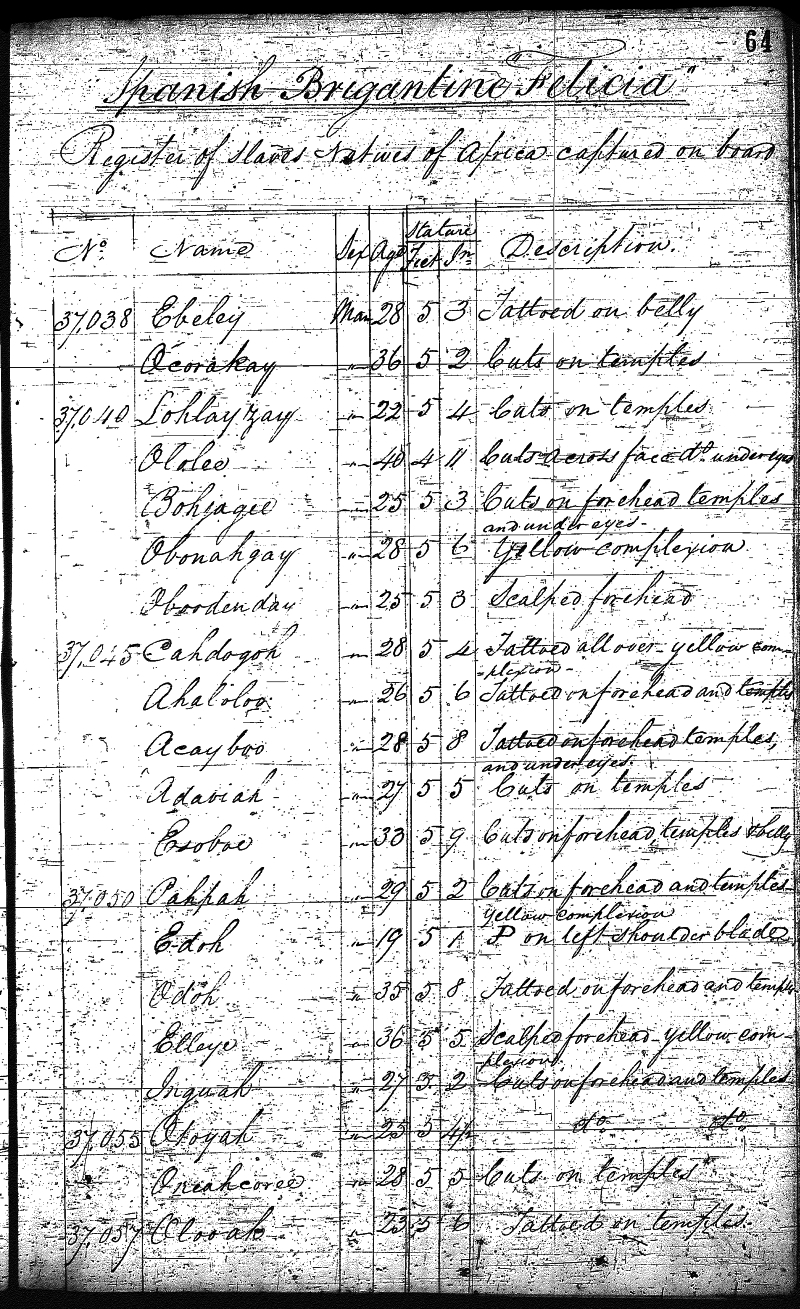 64
Spanish Brigantine "Felicia"
Register of Slaves Natives of Africa captured on board
No. Name Sex Age Stature Feet In. Description.
37,038 Ebeley Man 28 5 3 Tattoed on belly
Ocorakay " 36 5 2 Cuts on temples
37,040 Lohlayzay " 22 5 4 Cuts on temples
Ololee " 40 4 11 Cuts across face do. under eyes
Bohjagee " 25 5 3 Cuts on forehead temples
and under eyes-
Obonahgay " 28 5 6 Yellow complexion
Oboodenday " 25 5 3 Scalped forehead
37,045 Cahdogoh " 28 5 4 Tattoed all over - yellow com-
plexion-
Ahaloloo " 26 5 6 Tattoed on forehead and temples
Acayboo " 28 5 8 Tattoed on forehead temples,
and under eyes.
Adaviah " 27 5 5 Cuts on temples
Esoboe " 33 5 9 Cuts on forehead, temples & belly
37,050 Pahpah " 29 5 2 Cuts on forehead and temples-
yellow complexion
Edoh " 19 5 1 P on left shoulder blade
Odoh " 35 5 8 Tattoed on forehead and temples
Elleye " 36 5 5 Scalped forehead - yellow com-
plexion
Inguah " 27 5 2 Cuts on forehead and temples
37,055 Otoyah " 25 5 4½ do do
Oneahcoree " 28 5 5 Cuts on temples
37,057 Olooah " 23 5 6 Tattoed on temples.